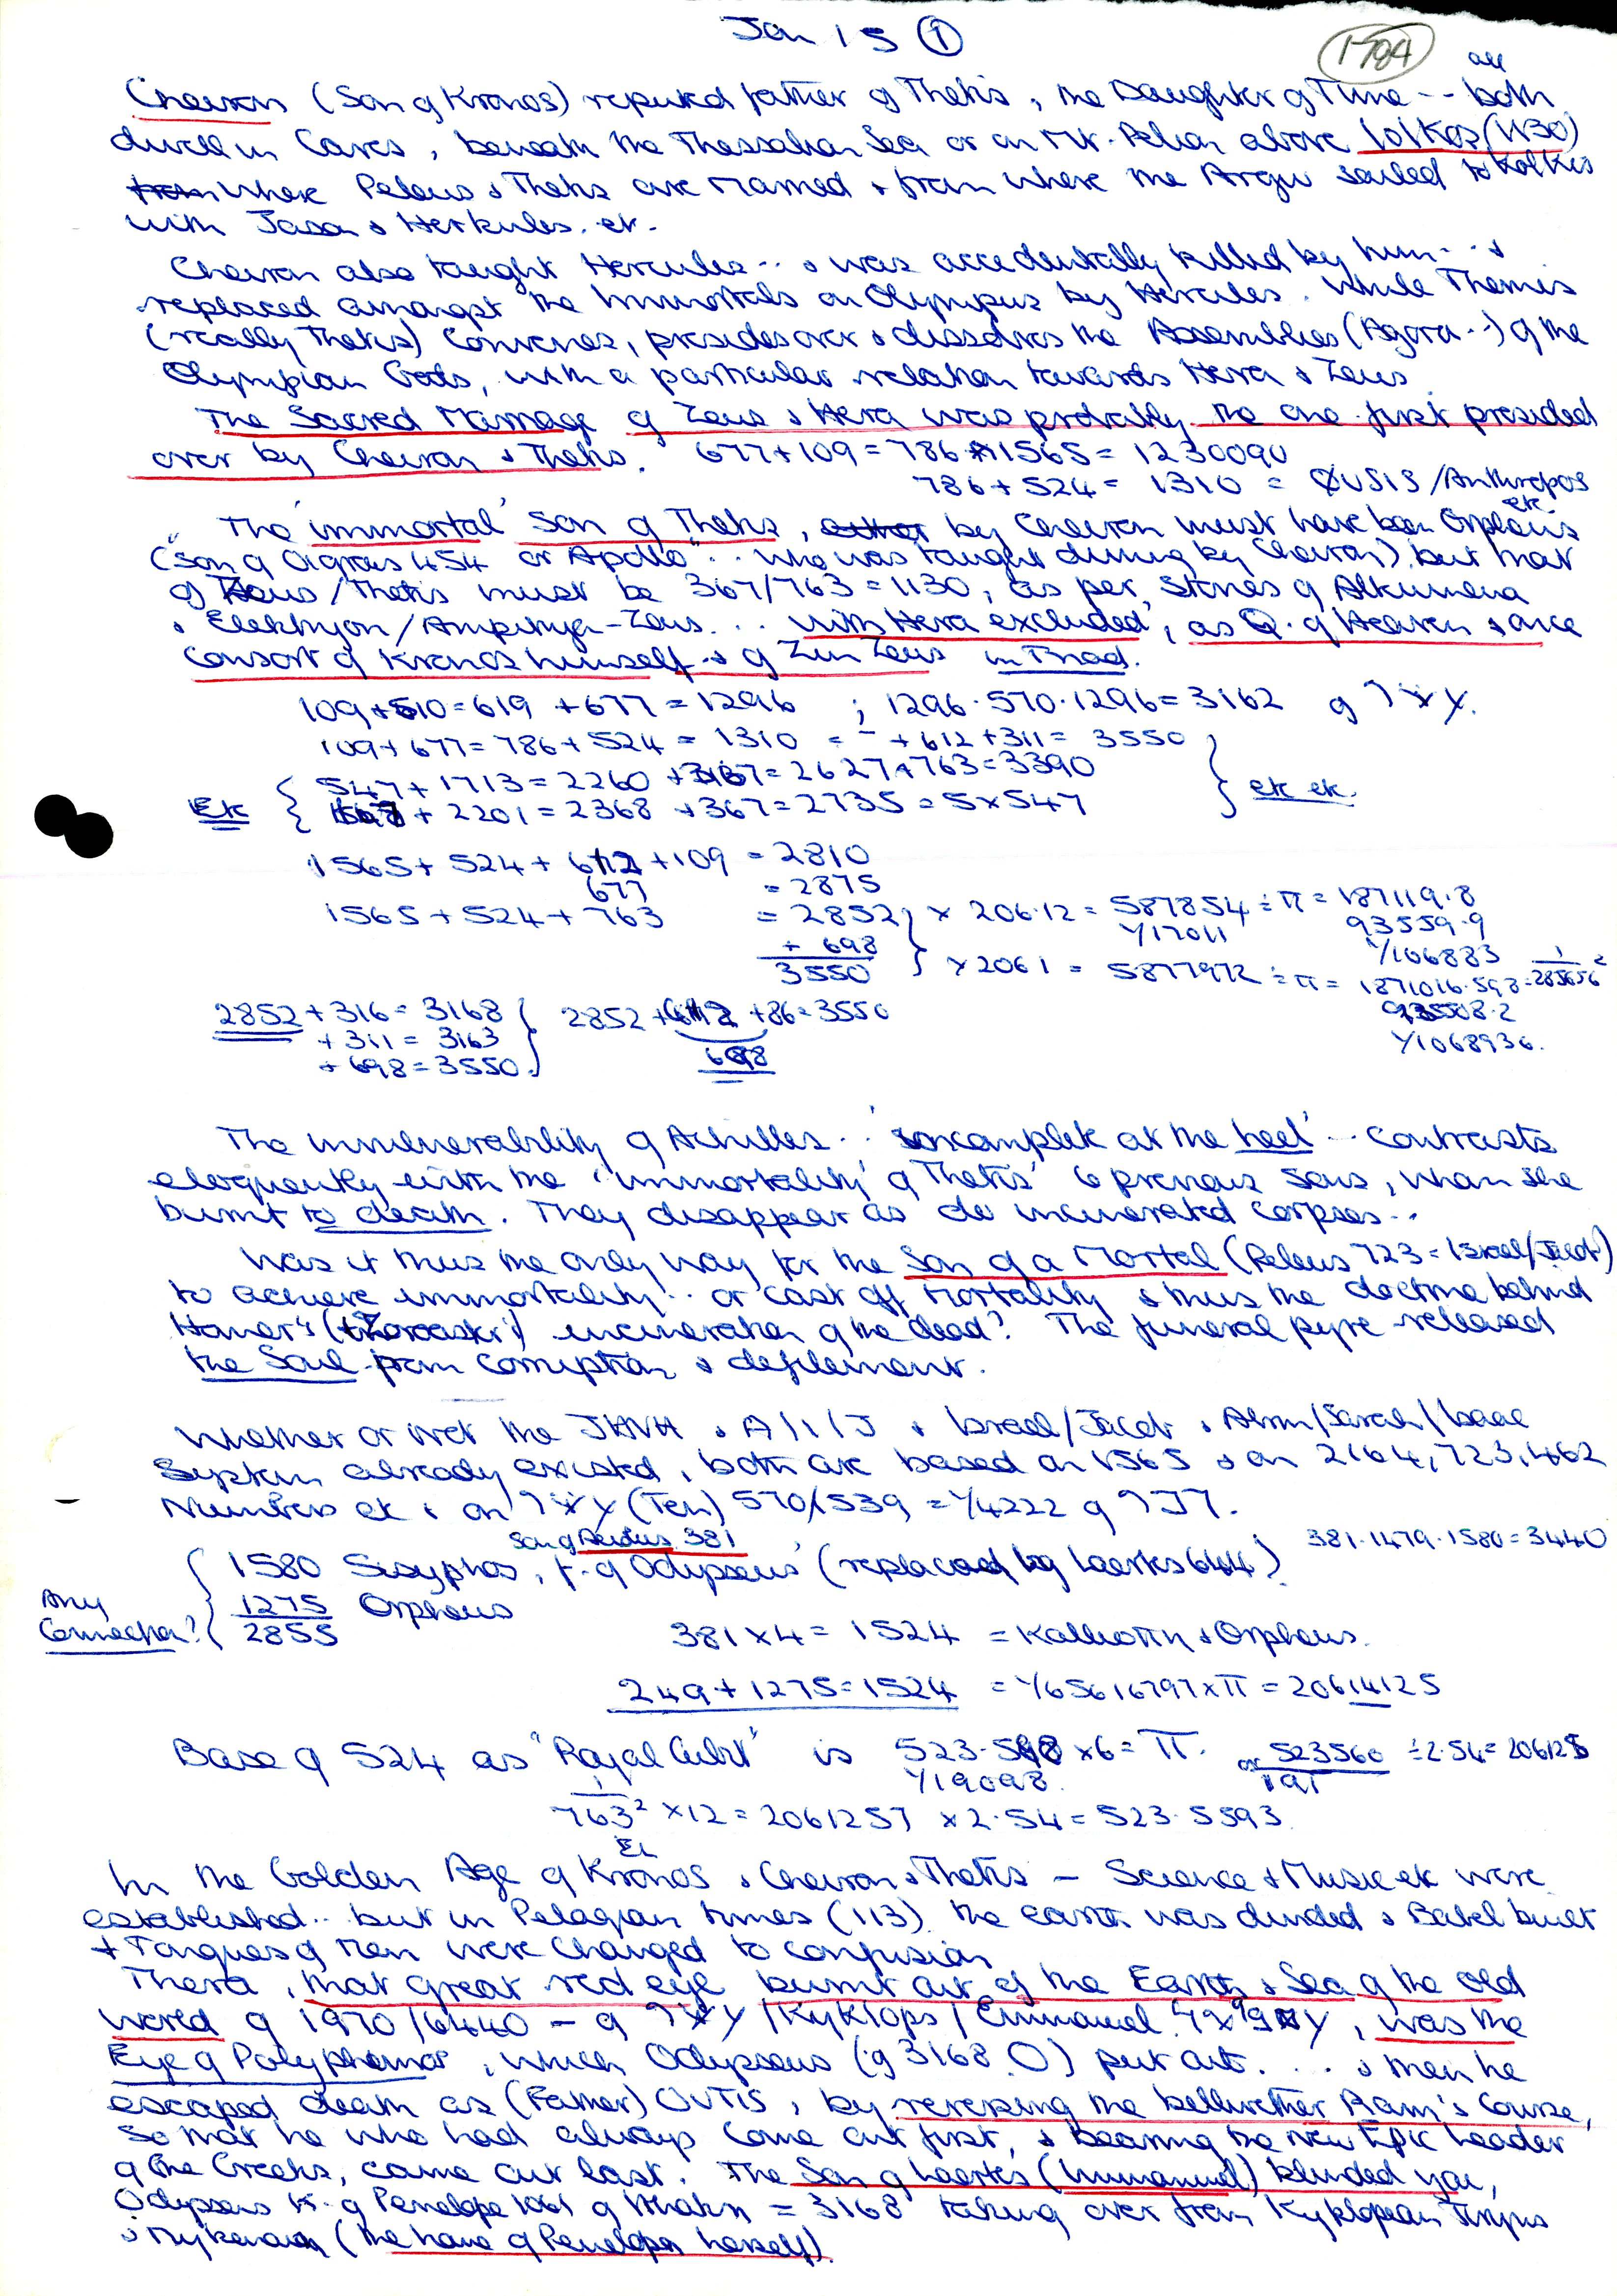 Jan 15 ①
1784
all
Cheiron (Son of Kronos) reputed father of Thetis, the Daughter of Time -- both
dwell in Caves, beneath the Thessalian Sea or on Mt. Pelion above Iolkos (1130)
where Peleus & Thetis are married & from where the Argo sailed to Kolkis
with Jason & Herkules. etc.
Cheiron also taught Hercules .. & was accidentally killed by him .. &
replaced amongst the Immortals on Olympus by Hercules. While Themis
(really Thetis) convenes, presides over & dissolves the Assemblies (Agora ..) of the
Olympian Gods, with a particular relation towards Hera & Zeus.
The Sacred Marriage of Zeus & Hera was probably the one first presided
over by Cheiron & Thetis. 677+109=786 × 1565 = 1230090
786+524 = 1310 = ΦUSIS/Anthropos
etc
The 'immortal' Son of Thetis, by Cheiron must have been Orpheus
("Son of Oigros 454 or Apollo" .. who was taught divining by Cheiron) but that
of Zeus/Thetis must be 367/763=1130, as per stories of Alkumena
& Elektryon/Ampitryon-Zeus... with Hera excluded, as Q. of Heaven & once
Consort of Kronos himself & of Zun Zeus in Triad.
109+510=619 +677=1296 ; 1296.570.1296=3162 of
109+677=786+524=1310 = - +612+311= 3550
547+1713=2260 +367=2627+763=3390
Etc + 2201=2368 +367=2735=5×547 etc etc.
1565+524+612+109 =2810
677 =2875
1565+524+763 =2852 × 206.12 = 587854 ÷π= 187119.8
1/17011 93559.9
+ 698 1/106883
3550 × 2061 = 5877972 ÷π= 1871016.598
2852+316=3168 2852+612+86=3550
+311=3163 698
+698=3550 1/1068936.
The invulnerability of Achilles .. 'incomplete at the heel' .. contrasts
eloquently with the 'immortality' of Thetis' 6 previous sons, whom she
burnt to death. They disappear as do incinerated corpses ..
Was it thus the only way for the Son of a Mortal (Peleus 723=Israel/Jacob)
to achieve immortality .. or cast off mortality & thus the doctrine behind
Homer's (& Zoroaster's) incineration of the dead? The funeral pyre released
the Soul from corruption & defilement.
Whether or not the JHVH & A/I/J & Israel/Jacob & Abrm/Sarah/Isaac
System already existed, both are based on 1565 & on 2164, 723, 462
Numbers etc & on (Ten) 570/539, =1/4222 of
Son of Aeolus 381
1580 Sisyphos, f. of Odysseus (replaced by Laertes 644) 381.1479.1580=3440
Any 1275 Orpheus
Connection? 2855 381×4= 1524 =Kalliopin & Orpheus.
249+1275=1524 =1/65616797×π=20614125
Base of 524 as "Royal Cubit" is 523.598 ×6=π. or 523560 ÷2.54=206125
1/19098. 191
1
763² ×12=2061257 ×2.54=523.5593.
EL
In the Golden Age of Kronos & Cheiron & Thetis – Science & Music etc were
established .. but in Pelagian times (113) the earth was divided & Babel built
+ Tongues of Men were changed to confusion
Thera, that great red eye burnt out of the Earth & Sea of the old
World of 1970/6440 – of /Kyklops/Emmanuel , was the
Eye of Polyphemos, which Odysseus (of 3168 O) put out. ... & then he
escaped death as (Father) OVTIS, by reversing the bellwether Ram's Course,
So that he who had always come out first, & bearing the new Epic Leader
of the Greeks, came out last. The Son of Laertes (Immanuel) blinded you,
Odysseus K. of Penelope of Ithakn = 3168 taking over from Kyklopean Tiryns
& Mykenaen (the home of Penelope herself).